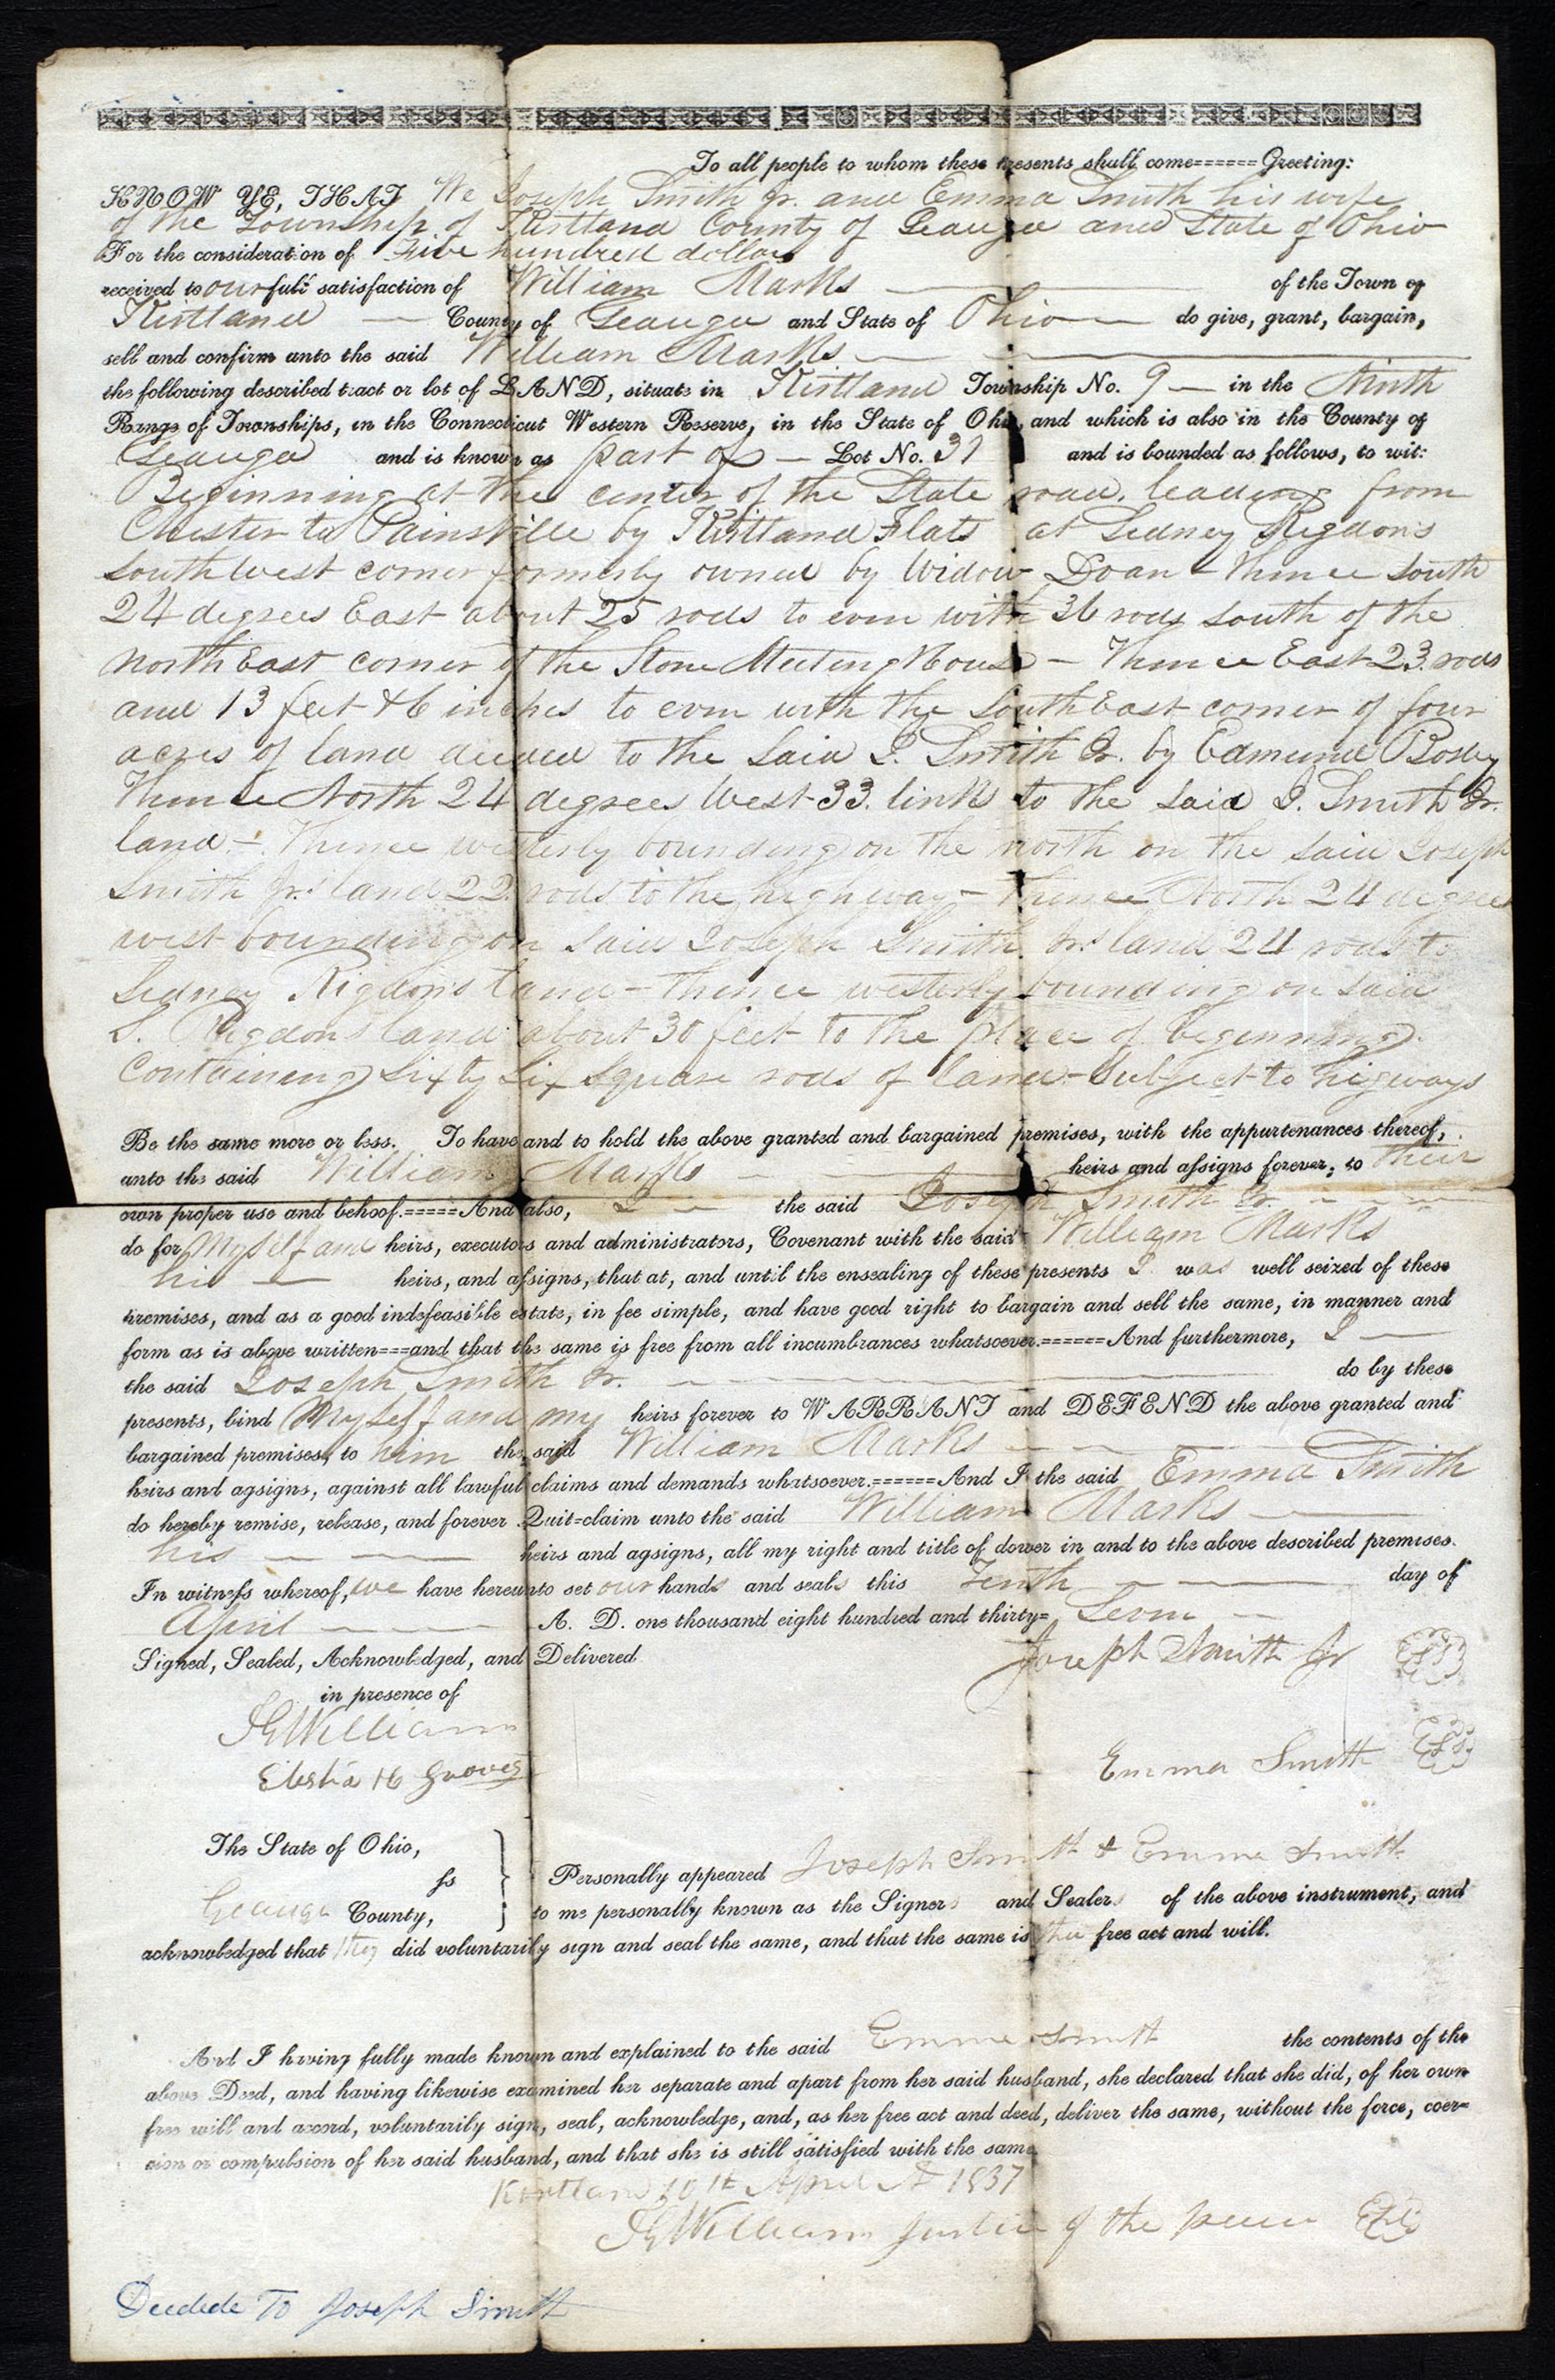 To all people to whom these presents shall come======Greeting:
KNOW YE, THAT We Joseph Smith Jr. and Emma Smith his wife
of the Township of Kirtland County of Geauga and State of Ohio
For the consideration of Five hundred dollars
received to our full satisfaction of William Marks of the Town of
Kirtland County of Geauga and State of Ohio do give, grant, bargain,
sell and confirm unto the said William Marks
the following described tract or lot of LAND, situate in Kirtland Township No. 9 in the Ninth
Range of Townships, in the Connecticut Western Reserve, in the State of Ohio, and which is also in the County of
Geauga and is known as part of Lot No. 31 and is bounded as follows, to wit:
Beginning at the center of the State road, leading from
Chester to Painsville by Kirtland Flats at Sidney Rigdon's
South West corner formerly owned by Widow Doan - Thence South
24 degrees East about 25 rods to even with 36 rods south of the
North East corner of the Stone Meeting House - Thence East 23 rods
and 13 feet & 6 inches to even with the South East corner of four
acres of land deeded to the said J. Smith Jr. by Edmund Bosley
Thence North 24 degrees West 33. links to the said J. Smith Jr.
land - Thence westerly bounding on the north on the said Joseph
Smith Jr.s land 22 rods to the highway - Thence North 24 degrees
west bounding on said Joseph Smith Jr.s land 24 rods to
Sidney Rigdon's land - thence westerly bounding on said
S. Rigdons land about 30 feet to the place of beginning.
Containing Sixty Six Square rods of land - Subject to higways
Be the same more or less. To have and to hold the above granted and bargained premises, with the appurtenances thereof,
unto the said William Marks heirs and assigns forever, to their
own proper use and behoof.=====And also, I the said Joseph Smith Jr.
do for Myself and heirs, executors and administrators, Covenant with the said William Marks
his heirs, and assigns, that at, and until the ensealing of these presents I was well seized of these
premises, and as a good indefeasible estate, in fee simple, and have good right to bargain and sell the same, in manner and
form as is above written===and that the same is free from all incumbrances whatsoever.======And furthermore, I
the said Joseph Smith Jr. do by these
presents, bind Myself and my heirs forever to WARRANT and DEFEND the above granted and
bargained premises, to him the said William Marks
heirs and agsigns, against all lawful claims and demands whatsoever.======And I the said Emma Smith
do hereby remise, release, and forever Quit=claim unto the said William Marks
his heirs and agsigns, all my right and title of dower in and to the above described premises.
In witness whereof, we have hereunto set our hands and seals this Tenth day of
April A. D. one thousand eight hundred and thirty= Seven
Signed, Sealed, Acknowledged, and Delivered Joseph Smith Jr LS
in presence of
F G Williams
Elisha H Groves Emma Smith LS
The State of Ohio,
ss
Geauga County,
Personally appeared Joseph Smith & Emma Smith
to me personally known as the Signers and Sealers of the above instrument, and
acknowledged that they did voluntarily sign and seal the same, and that the same is their free act and will.
And I having fully made known and explained to the said Emma Smith the contents of the
above Deed, and having likewise examined her separate and apart from her said husband, she declared that she did, of her own
free will and accord, voluntarily sign, seal, acknowledge, and, as her free act and deed, deliver the same, without the force, coer=
cion or compulsion of her said husband, and that she is still satisfied with the same
Kirtland 10th April 1837
F G Williams Justice of the peace
Deedede To Joseph Smith